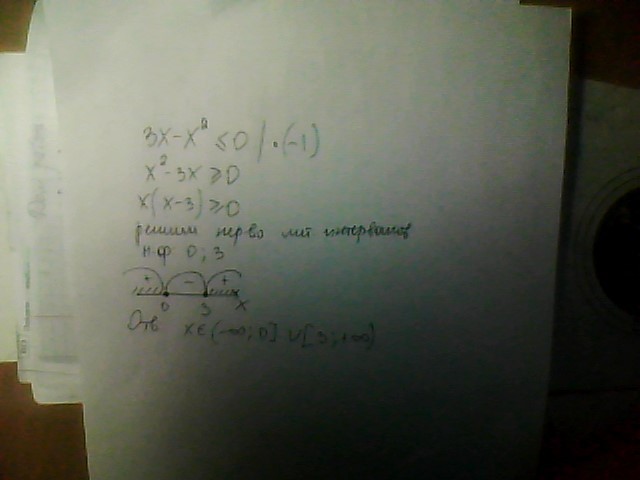 3x-x² ≤0 | ·(-1)
x²-3x ≥0
x(x-3) ≥0
решим нер-во мет интервалов
н.ф 0; 3
+ - +
0 3 x
Отв x∈(-∞; 0] ∪[3; +∞)